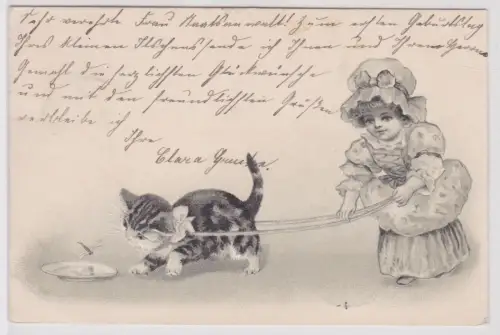 Sehr verehrte Frau Staatsanwalt! Zum ersten Geburtstag
Ihres kleinen sende ich Ihnen und Ihrem Herrn
Gemahl die herzlichsten Glückwünsche
und mit den freundlichsten Grüßen
verbleibe ich
Ihre
Clara